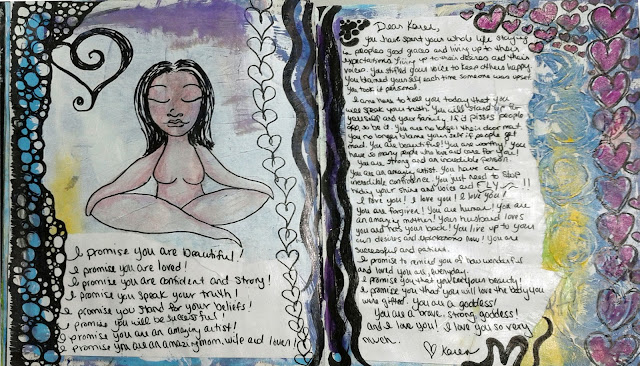 I promise you are beautiful!
I promise you are loved!
I promise you are confident and strong!
I promise you speak your truth!
I promise you stand for your beliefs!
I promise you will be successful!
I promise you are an amazing artist!
I promise you are an amazing mom, wife and lover!
Dear Karen,
You have spent your whole life staying
in peoples good graces and living up to their
expectations. Living up to their desires and their
voices. You stifled your voice to keep others happy.
You blamed yourself each time someone was upset.
You took it personal.
I am here to tell you today that you
will speak your truth. You will stand up for
yourself and your family. If it pisses people
off, so be it. You are no longer their door mat.
You no longer blame your self if people get
mad. You are beautiful! You are worthy! You
have so many people who love and care for you!
You are strong and an incredible person.
You are an amazing artist. You have an
incredible confidence. You just need to stop
hiding your shine and voice and FLY!!
I love you! I love you! I love you!
You are forgiven! You are human! You are
an amazing mother! Your husband loves
you and has your back! You live up to your
own desires and expectations now! You are
successful and
I promise to remind you of how wonderful
and loved you are, everyday.
I promise that you your beauty!
I promise you that you will love the body you
were gifted. You are a goddess!
You are a brave, strong goddess!
and I love you! I love you so very
much.
Karen